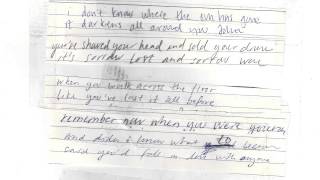 i don't know where the sun has gone
it darkens all around now John
you've shaved your head and sold your drum
it's sorrow lost and sorrow won
when you walk across the floor
like you've lost it all before
remember now when you were
and didn't know what to become
said you'd fall in love with anyone